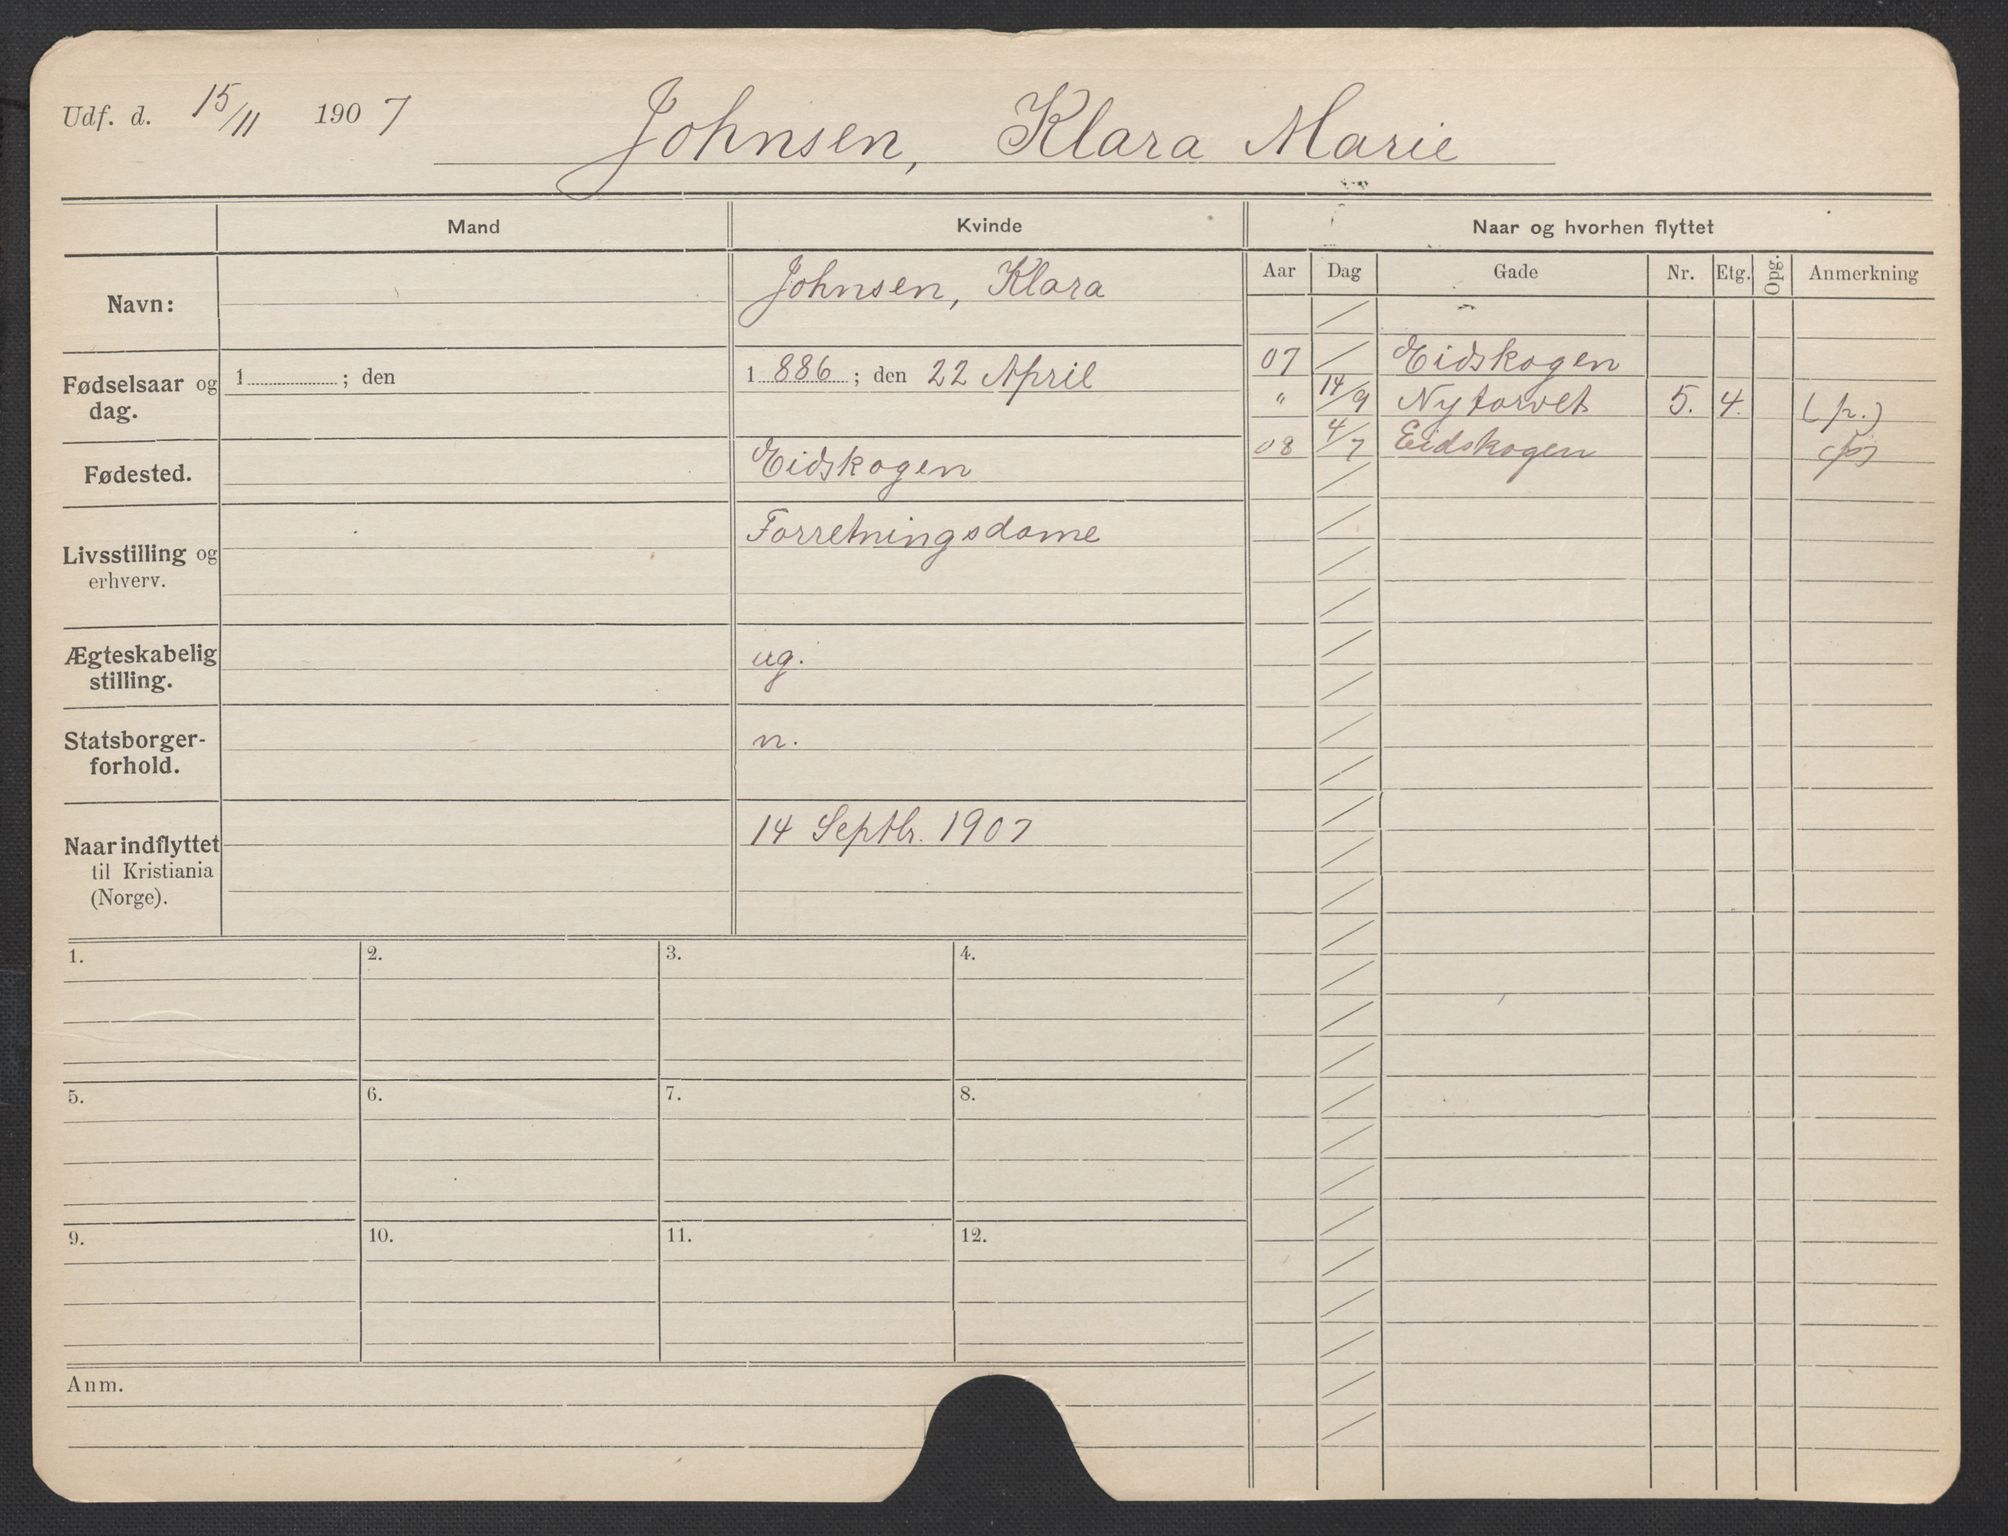 Udf. d. 15/11 1907
Johnsen, Klara Marie
Mand
Kvinde
Naar og hvorhen flyttet
Navn:
Johnsen, Klara
Fødselsaar og dag.
1 ; den
1886 ; den 22 April
Fødested.
Eidskogen
Livsstilling og erhverv.
Forretningsdame
Ægteskabelig stilling.
ug.
Statsborgerforhold.
n.
Naar indflyttet til Kristiania (Norge).
14 Septbr. 1907
Aar Dag Gade Nr. Etg. Opg. Anmerkning
07 / Eidskogen
" 14/9 Nytorvet 5. 4. (p.)
08 4/7 Eidskogen
1. 2. 3. 4.
5. 6. 7. 8.
9. 10. 11. 12.
Anm.